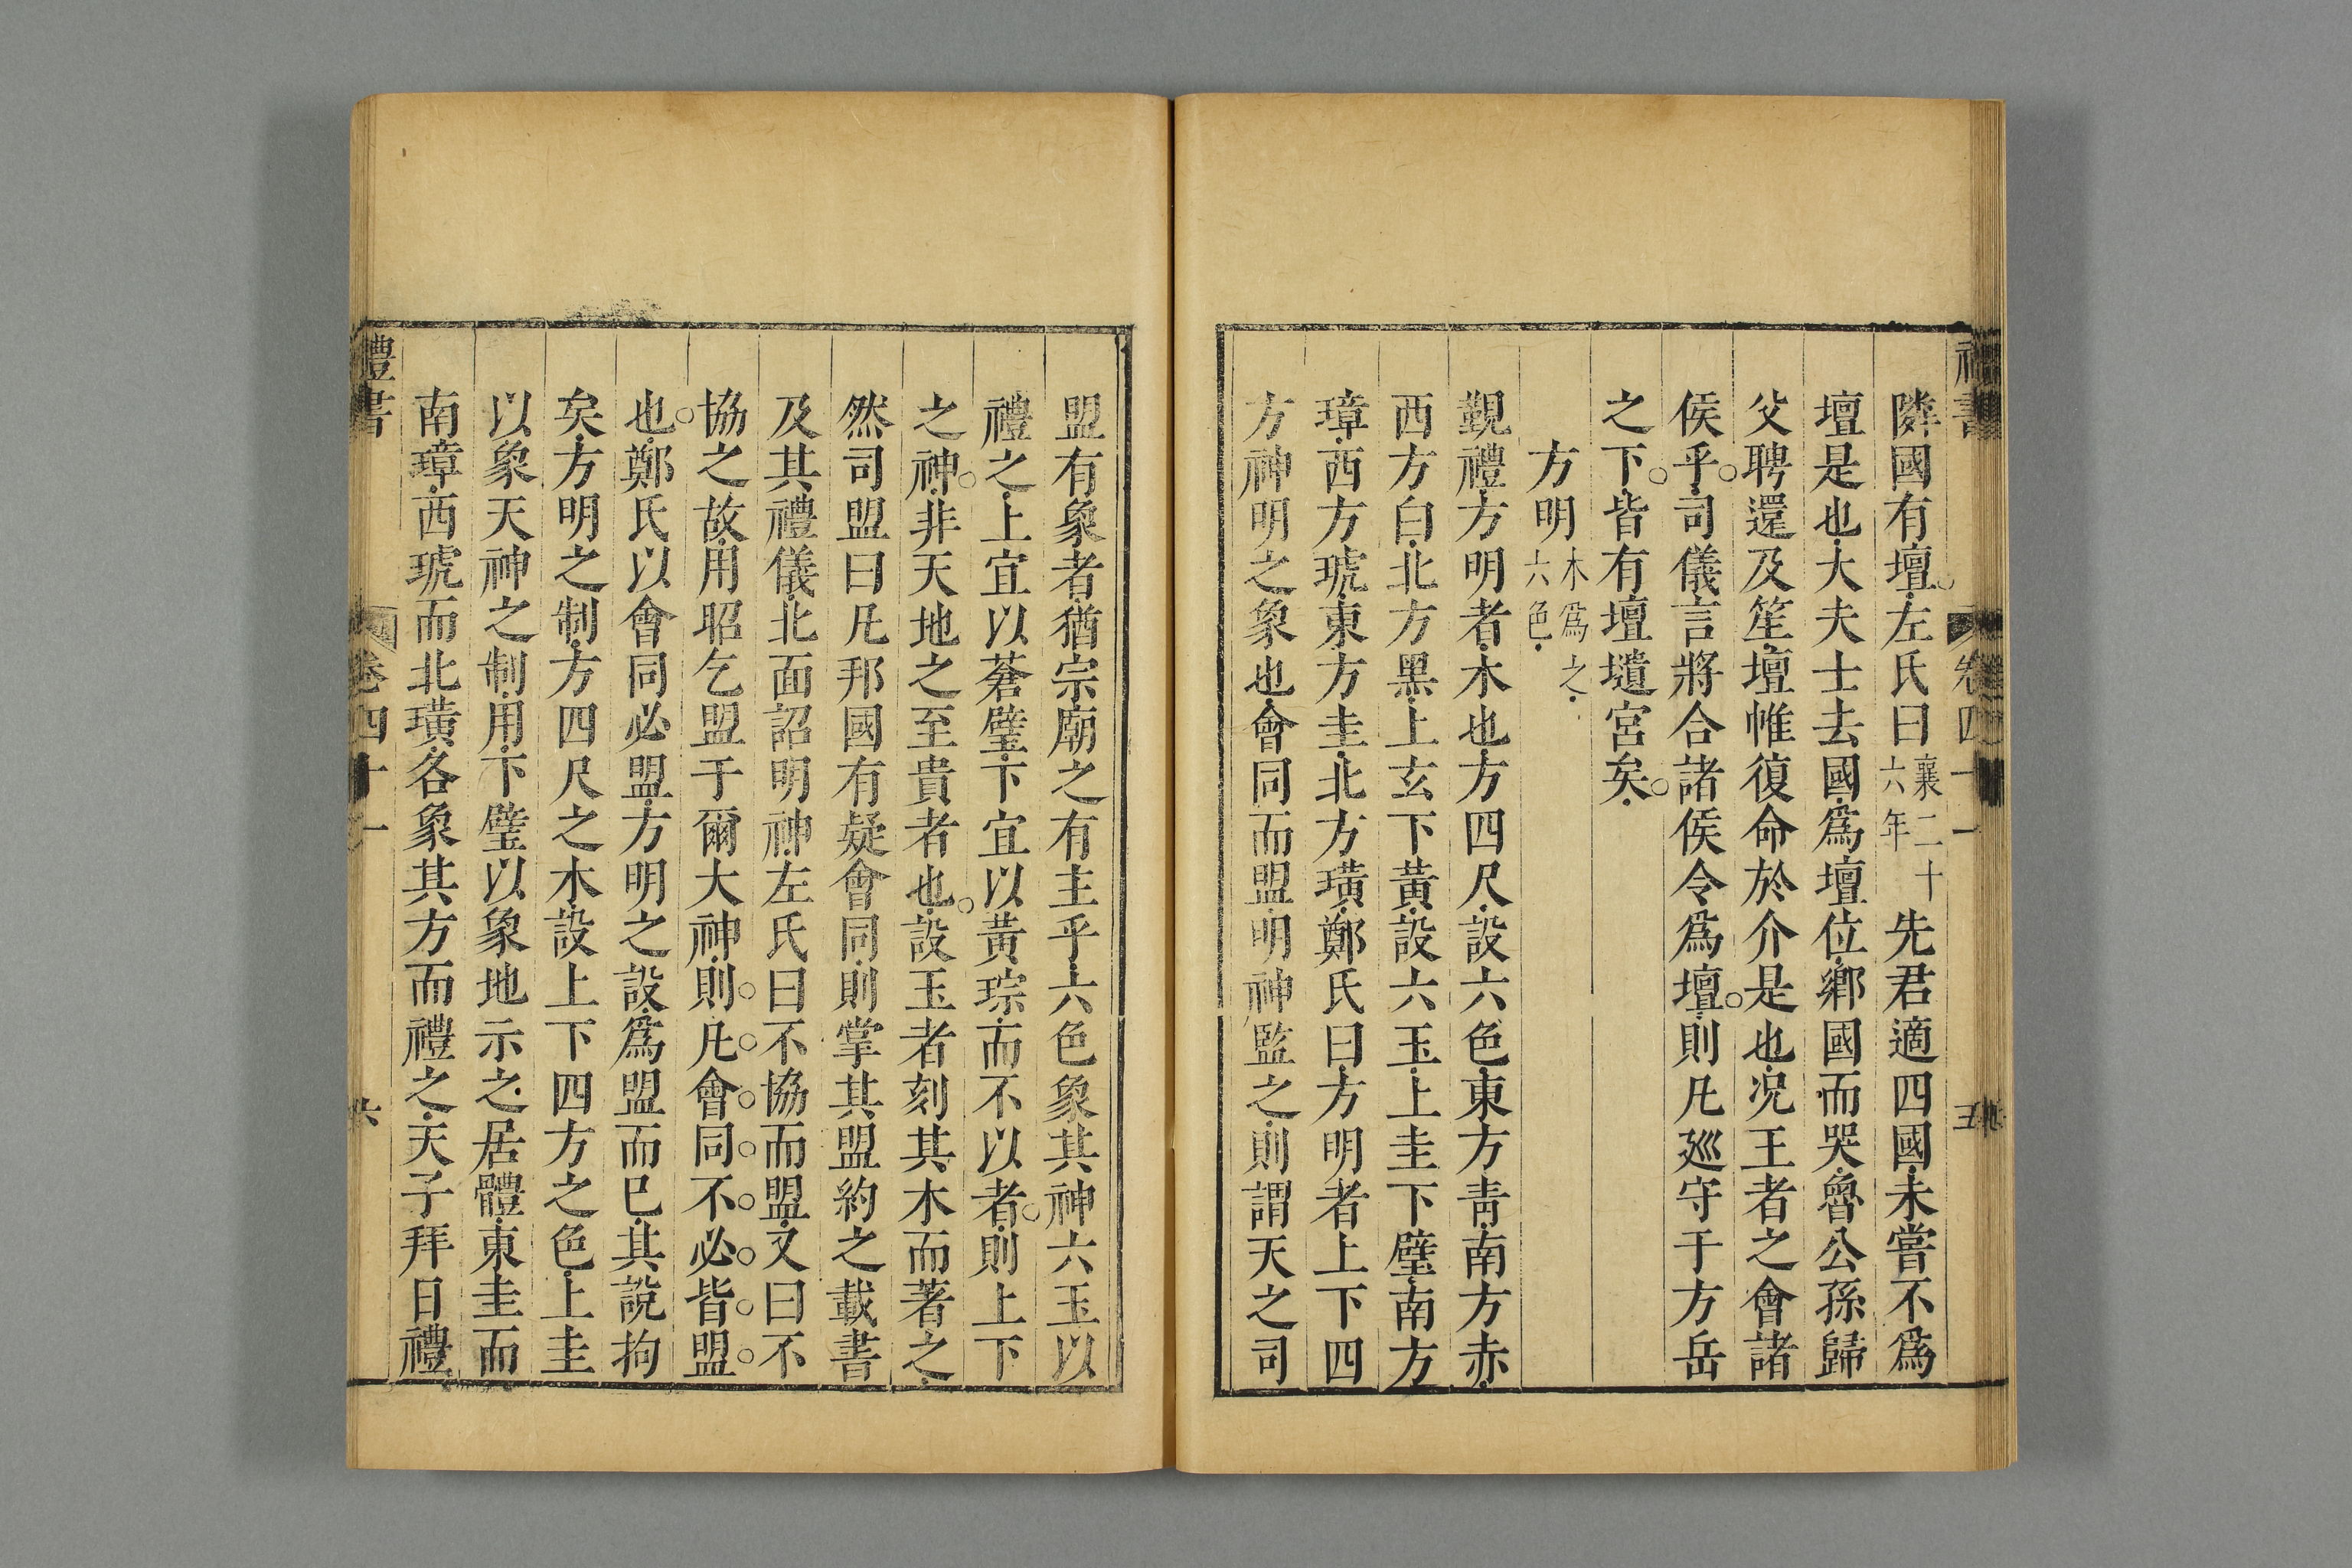 隣國有壇左氏曰襄二十六年先君適四國未嘗不爲
壇是也大夫士去國爲壇位鄕國而哭魯公孫歸
父聘還及笙壇帷復命於介是也况王者之會諸
侯乎司儀言將合諸侯令爲壇則凡廵守于方岳
之下皆有壇壝宮矣
方明木爲之六色
覲禮方明者木也方四尺設六色東方靑南方赤
西方白北方黑上玄下黃設六玉上圭下璧南方
璋西方琥東方圭北方璜鄭氏曰方明者上下四
方神明之象也會同而盟明神監之則謂天之司
盟有象者猶宗廟之有主乎六色象其神六玉以
禮之上宜以蒼璧下宜以黃琮而不以者則上下
之神非天地之至貴者也設玉者刻其木而著之
然司盟曰凡邦國有疑會同則掌其盟約之載書
及其禮儀北面詔明神左氏曰不協而盟又曰不
協之故用昭乞盟于爾大神則凡會同不必皆盟
也鄭氏以會同必盟方明之設爲盟而已其說拘
矣方明之制方四尺之木設上下四方之色上圭
以象天神之制用下璧以象地示之居體東圭而
南璋西琥而北璜各象其方而禮之天子拜日禮
禮書
卷四十一
六